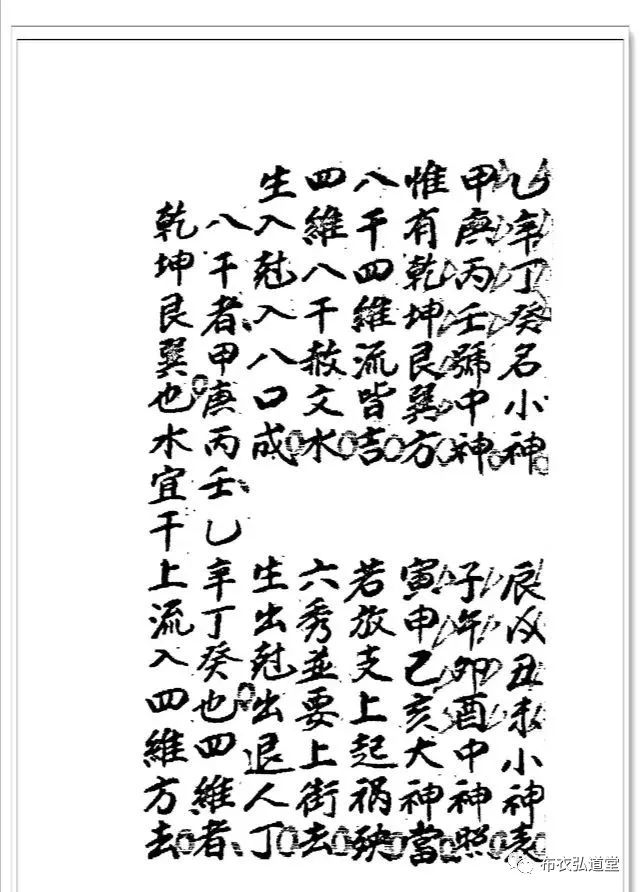 乙辛丁癸名小神 辰戌丑未小神表
甲庚丙壬號中神 子午卯酉中神照
惟有乾坤艮巽方 寅申己亥大神當
八干四維流皆吉 若放支上起祸殃
四維八干赦文水 六秀並要上街去
生入尅入八口成 生出尅出退人丁
八干者甲庚丙壬乙辛丁癸也四維者
乾坤艮巽也水宜干上流入四維方去
布衣弘道堂